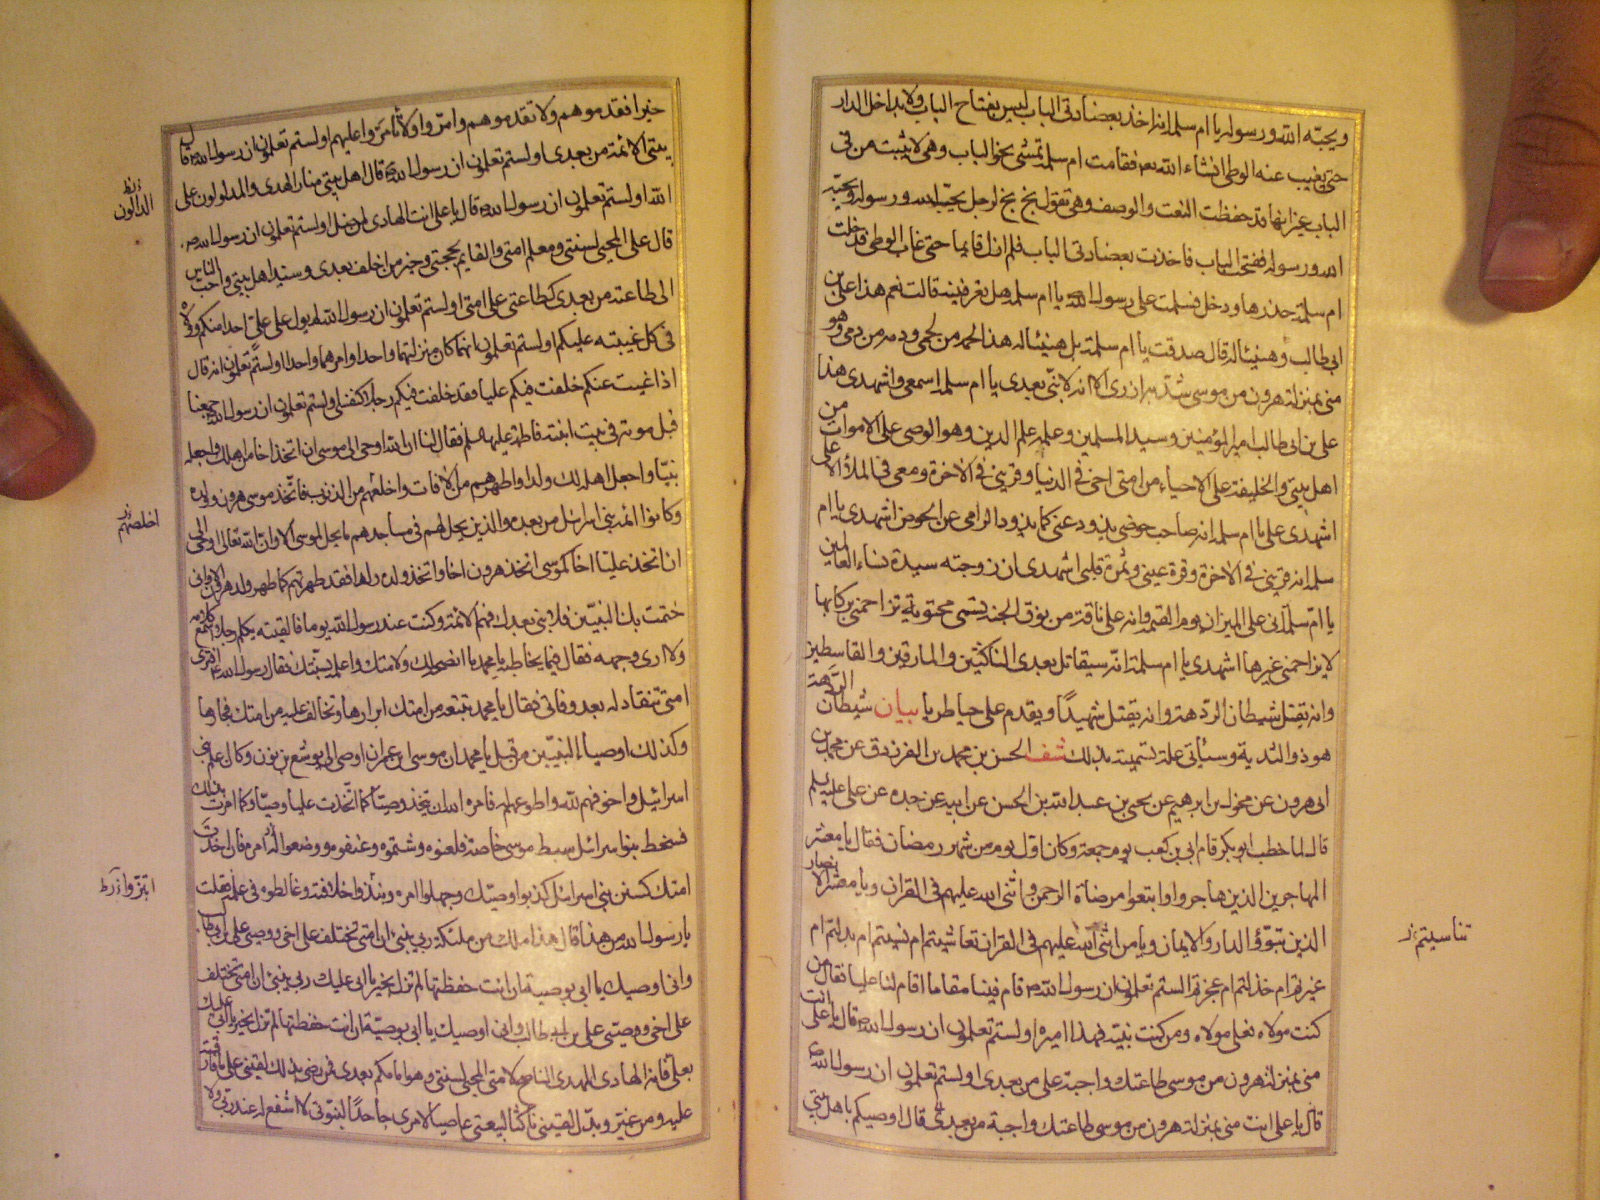 ويحبه الله ورسوله يا ام سلمة انه اخذ بعضادتى الباب ليس بفتاح الباب ولا بداخل الدار
حتى يغيب عنه الوطى انشاء الله فقامت ام سلمة تمشى نحو الباب وهى لا تثبت من فى
الباب غير انها قد حفظت النعت والوصف وهى تقول بخ بخ لرجل يحب الله ورسوله ويحبه
الله ورسوله ففتحت الباب فاخذت بعضادتى الباب فلم ازل قايما حتى غاب الوطى فدخلت
ام سلمة خدرها ودخل فسلمت على رسول الله يا ام سلمة هل تعرفينه قالت نعم هذا على بن
ابى طالب وهنيئا له قال صدقت يا ام سلمة بل هنيئا له هذا لحمه من لحمى ودمه من دمى وهو
منى بمنزلة هرون من موسى شد به ازرى الا انه لا نبى بعدى يا ام سلمة اسمعى واشهدى هذا
على بن ابى طالب امير المؤمنين وسيد المسلمين وعلمه علم الدين وهو الوصى على الاموات من
اهل بيتى والخليفة على الاحياء من امتى اخى فى الدنيا وقرينى فى الاخرة ومعى فى الملأ الاعلى
اشهدى على يا ام سلمة انه صاحب حوضى يذود عنى كما يذود الراعى عن الحوض اشهدى يا ام
سلمة انه قرينى فى الاخرة وقرة عينى وثمرة قلبى اشهدى ان زوجته سيدة نساء العالمين
يا ام سلمة انى على الميزان يوم القيمة وانه على ناقة من نوق الجنة تسمى محتوية تزاحمنى بركابها
لا يزاحمنى غيرها اشهدى يا ام سلمة انه سيقاتل بعدى الناكثين والمارقين والقاسطين
وانه يقتل شيطان الردهة وانه يقتل شهيدًا ويقدم على حيا طريا بيان شيطان الردهة
هو ذو الثدية وسيأتى علة تسميته بذلك شف الحسن بن محمد بن الفرزدق عن محمد بن
ابى هرون عن مخول بن ابرهيم عن يحيى بن عبد الله بن الحسن عن ابيه عن جده عن على عليه السلم
قال لما خطب ابو بكر قام ابى بن كعب يوم جمعة وكان اول يوم من شهر رمضان فقال يا معشر
المهاجرين الذين هاجروا واتبعوا مرضاة الرحمن واثنى الله عليهم فى القران ويا معشر الانصار
الذين تبوؤ الدار والايمان ويا من اثنى الله عليهم فى القران تعاشيتم ام نسيتم ام بدلتم ام
غيرتم ام خذلتم ام عجزتم الستم تعلمون ان رسول الله قام فينا مقاما اقام لنا عليا فقال من
كنت مولاه فعلى مولاه ومن كنت نبيه فهذا اميره اولستم تعلمون ان رسول الله قال يا على انت
منى بمنزلة هرون من موسى طاعتك واجبة على من بعدى اولستم تعلمون ان رسول الله
قال يا على انت منى بمنزلة هرون من موسى طاعتك واجبة من بعدى قال اوصيكم باهل بيتى
تناسيتم
خيرا فقدموهم ولا تقدموهم وامروا ولا تأمروا عليهم اولستم تعلمون ان رسول الله قال
بيتى الائمة من بعدى اولستم تعلمون ان رسول الله قال اهل بيتى منار الهدى والمدلولون على
الله اولستم تعلمون ان رسول الله قال يا على انت الهادى لمن ضل اولستم تعلمون ان رسول الله
قال على المحيى لسنتى ومعلم امتى والقايم بحجتى وخير من اخلف بعدى وسيد اهل بيتى واحب الناس
الى طاعته من بعدى كطاعتى على امتى اولستم تعلمون ان رسول الله لم يول على على احدا منكم وولاه
فى كل غيبته عليكم اولستم تعلمون انهما كان منزلتهما واحدا وامرهما واحدا اولستم تعلمون انه قال
اذا غبت عنكم خلفت فيكم عليا فقد خلفت فيكم رجلا كنفسى اولستم تعلمون ان رسول الله جمعنا
قبل موته فى بيت ابنته فاطمة عليها السلم فقال لنا ان الله اوحى الى موسى ان اتخذ اخا من اهلك واجعله
نبيا واجعل اهله لك ولدا واطهرهم من الافات واخلعهم من الذنوب فاتخذ موسى هرون وولده
وكانوا ائمة بنى اسرائيل من بعده والذين يحل لهم فى مساجدهم ما يحل لموسى الا وان الله تعالى اوحى الى
ان اتخذ عليا اخا كموسى اتخذ هرون اخا واتخذ ولده ولدا فقد طهرتهم كما طهر ولد هرون الا وانى
ختمت بك النبيين فلا نبى بعدك فهم الائمة وكنت عند رسول الله يوما فالفيته يكلم رجلا واسمع كلامه
ولا ارى وجهه فقال فيما يخاطبه يا محمد ما انصحه لك ولامتك واعلمه بسنتك فقال رسول الله افترى
امتى تنقاد له بعد وفاتى فقال يا محمد تتبعه من امتك ابرارها وتخالف عليه من امتك فجارها
وكذلك اوصياء النبيين من قبل يا محمد ان موسى بن عمران اوصى الى يوشع بن نون وكان اعلم بنى
اسرائيل واخوفهم لله واطوعهم له فامره الله ان يتخذه وصيًا كما اتخذت عليا وصيا وكما امرت بذلك
فسخط بنو اسرائيل سبط موسى خاصة فلعنوه وشتموه وعنفوه ووضعوا له امره فان اخذت
امتك كسنن بنى اسرائيل كذبوا وصيتك وجهلوا امره ونبذوا خلافته وغالطوه فى علمه فقلت
يا رسول الله من هذا قال هذا ملك من ملئكة ربى ينبئ ان امتى تختلف على اخى ووصيى على بن ابى طالب
وانى اوصيك يا ابى بوصية ان انت حفظتها لم تزل بخير يا ابى عليك
على اخى ووصيى على بن ابى طالب وانى اوصيك يا ابى بوصية ان انت حفظتها لم تزل بخير يا ابى عليك
بعلى فانه الهادى المهدى الناصح لامتى المحيى لسنتى وهو امامكم بعدى فمن رضى بذلك لقينى على ما فارقته
عليه ومن غير وبدل لقينى ناكثا لبيعتى عاصيا لامرى جاحدًا لنبوتى لا اشفع له عند ربى ولا
الدالون
اخلصهم
ابتزوا